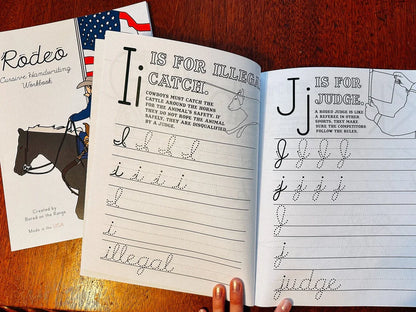 Rodeo
Cursive Handwriting
Workbook
Created by
Bored on the Range
Made in the USA
Ii
IS FOR ILLEGAL
CATCH.
COWBOYS MUST CATCH THE
CATTLE AROUND THE HORNS
FOR THE ANIMAL'S SAFETY. IF
THEY DO NOT ROPE THE ANIMAL
SAFELY, THEY ARE DISQUALIFIED
BY A JUDGE.
I I I I
i i i i
I
i
illegal
Jj
IS FOR
JUDGE.
A RODEO JUDGE IS LIKE
A REFEREE IN OTHER
SPORTS. THEY MAKE
SURE THE COMPETITORS
FOLLOW THE RULES.
J J J J
j j j j
J
j
judge